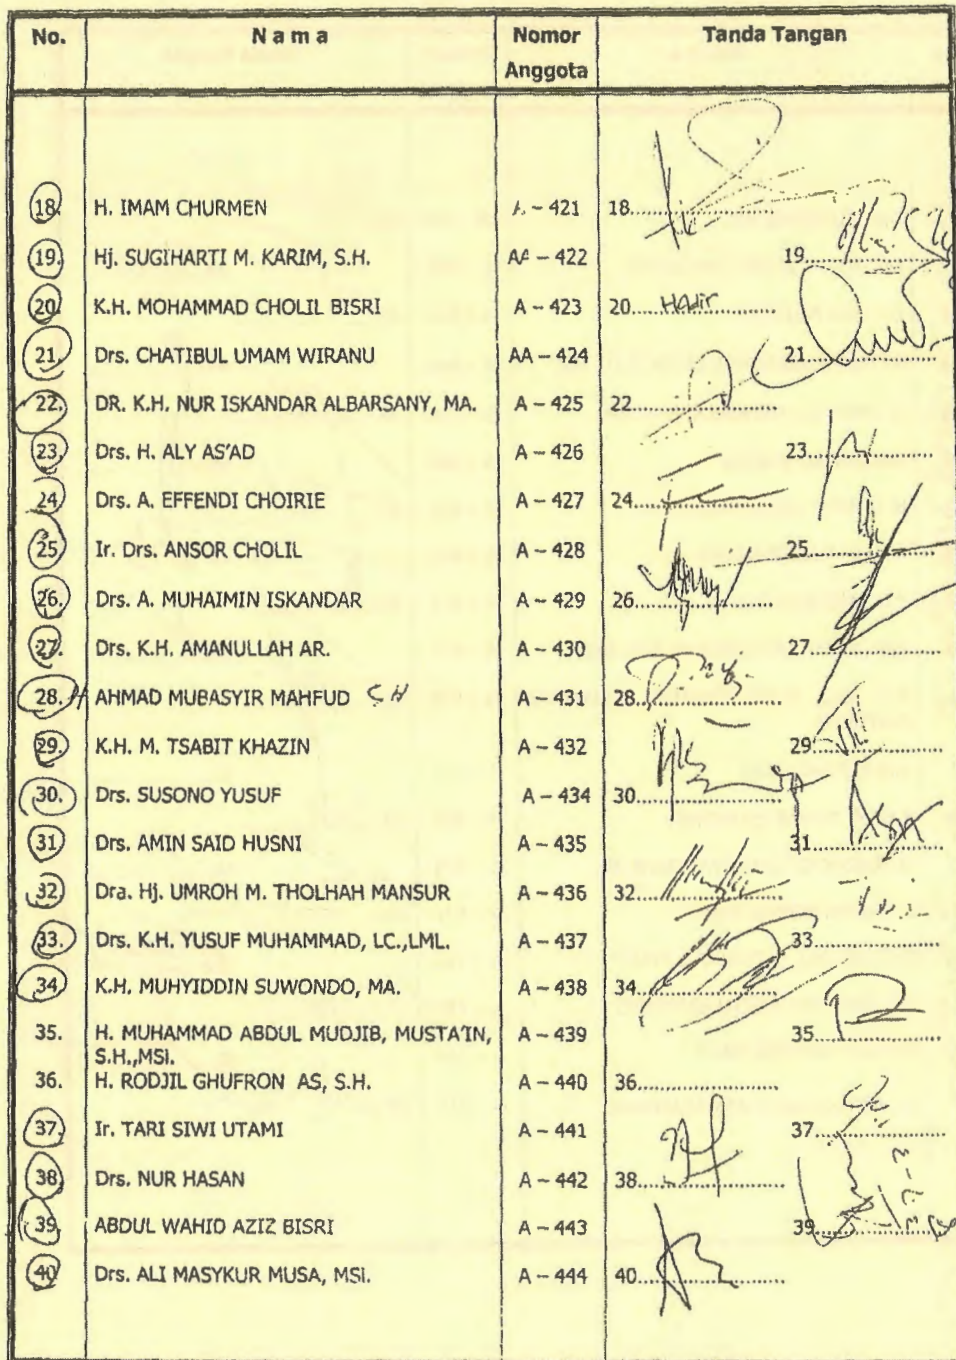 No. Nama Nomor Anggota Tanda Tangan
18. H. IMAM CHURMEN A – 421 18...................
19. Hj. SUGIHARTI M. KARIM, S.H. AA – 422 19...................
20. K.H. MOHAMMAD CHOLIL BISRI A – 423 20. HADIR
21. Drs. CHATIBUL UMAM WIRANU AA – 424 21...................
22. DR. K.H. NUR ISKANDAR ALBARSANY, MA. A – 425 22...................
23. Drs. H. ALY AS'AD A – 426 23...................
24. Drs. A. EFFENDI CHOIRIE A – 427 24...................
25. Ir. Drs. ANSOR CHOLIL A – 428 25...................
26. Drs. A. MUHAIMIN ISKANDAR A – 429 26...................
27. Drs. K.H. AMANULLAH AR. A – 430 27...................
28. H AHMAD MUBASYIR MAHFUD SH A – 431 28...................
29. K.H. M. TSABIT KHAZIN A – 432 29...................
30. Drs. SUSONO YUSUF A – 434 30...................
31. Drs. AMIN SAID HUSNI A – 435 31...................
32. Dra. Hj. UMROH M. THOLHAH MANSUR A – 436 32...................
33. Drs. K.H. YUSUF MUHAMMAD, LC.,LML. A – 437 33...................
34. K.H. MUHYIDDIN SUWONDO, MA. A – 438 34...................
35. H. MUHAMMAD ABDUL MUDJIB, MUSTA'IN, A – 439 35...................
S.H.,MSi.
36. H. RODJIL GHUFRON AS, S.H. A – 440 36...................
37. Ir. TARI SIWI UTAMI A – 441 37...................
38. Drs. NUR HASAN A – 442 38...................
39. ABDUL WAHID AZIZ BISRI A – 443 39...................
40. Drs. ALI MASYKUR MUSA, MSi. A – 444 40...................